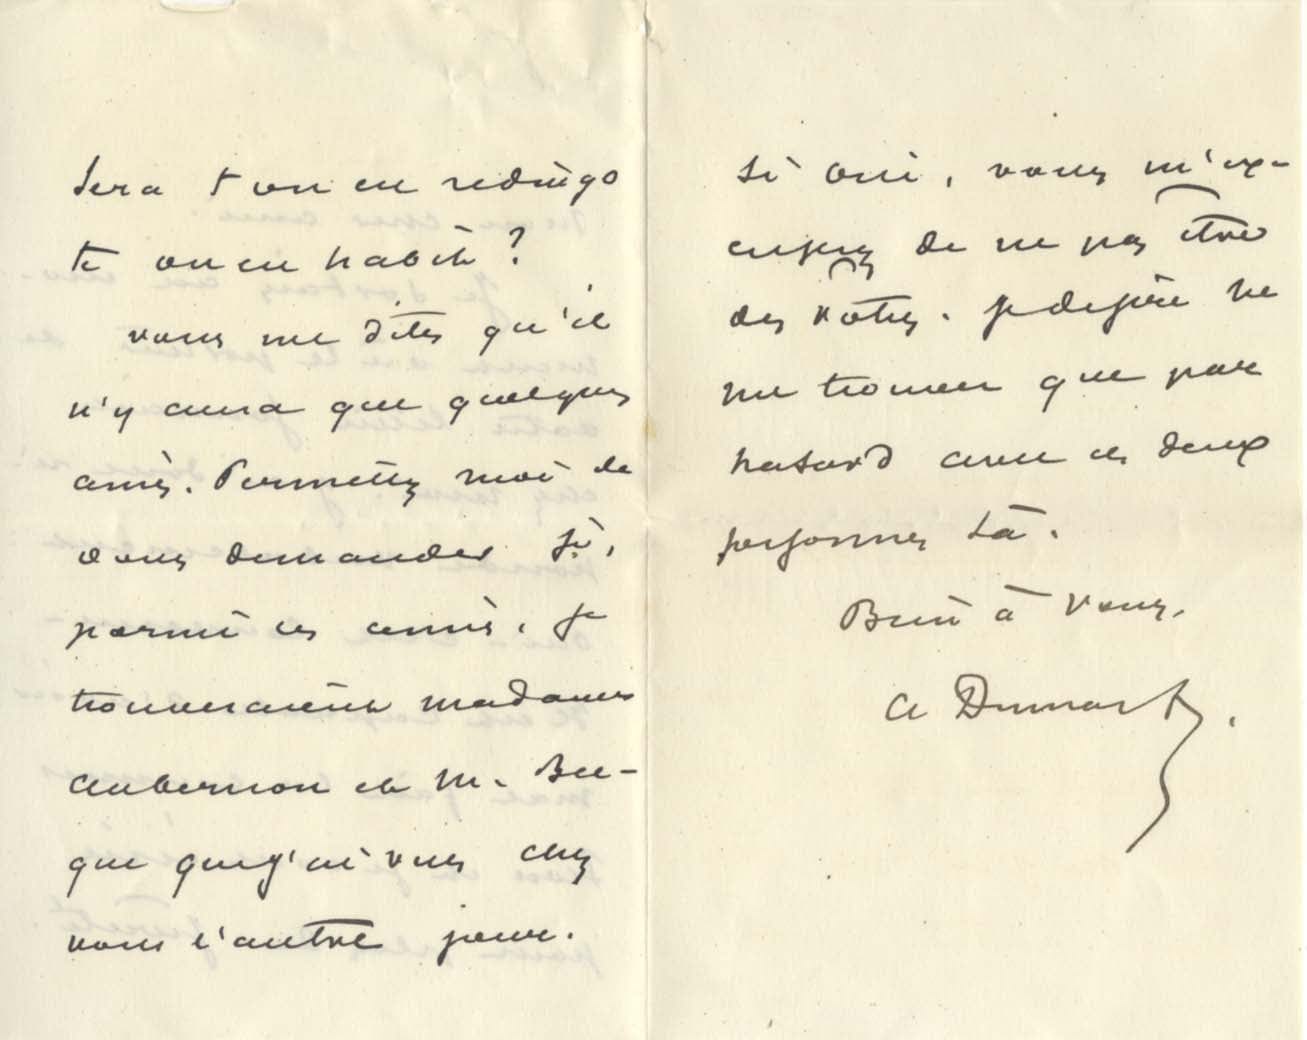 Sera t on en redingo
te ou en habit ?
vous me dites qu'il
n'y aura que quelques
amis. Permettez moi de
vous demander si,
parmi ces amis, je
trouverais madame
Aubernon et M. Bec-
que que j'ai vus chez
vous l'autre jour.
Si oui, vous m'ex-
cuserez de ne pas être
des vôtres. Je desire ne
me trouver que par
hasard avec ces deux
personnes là.
Bien à vous.
A Dumas f.